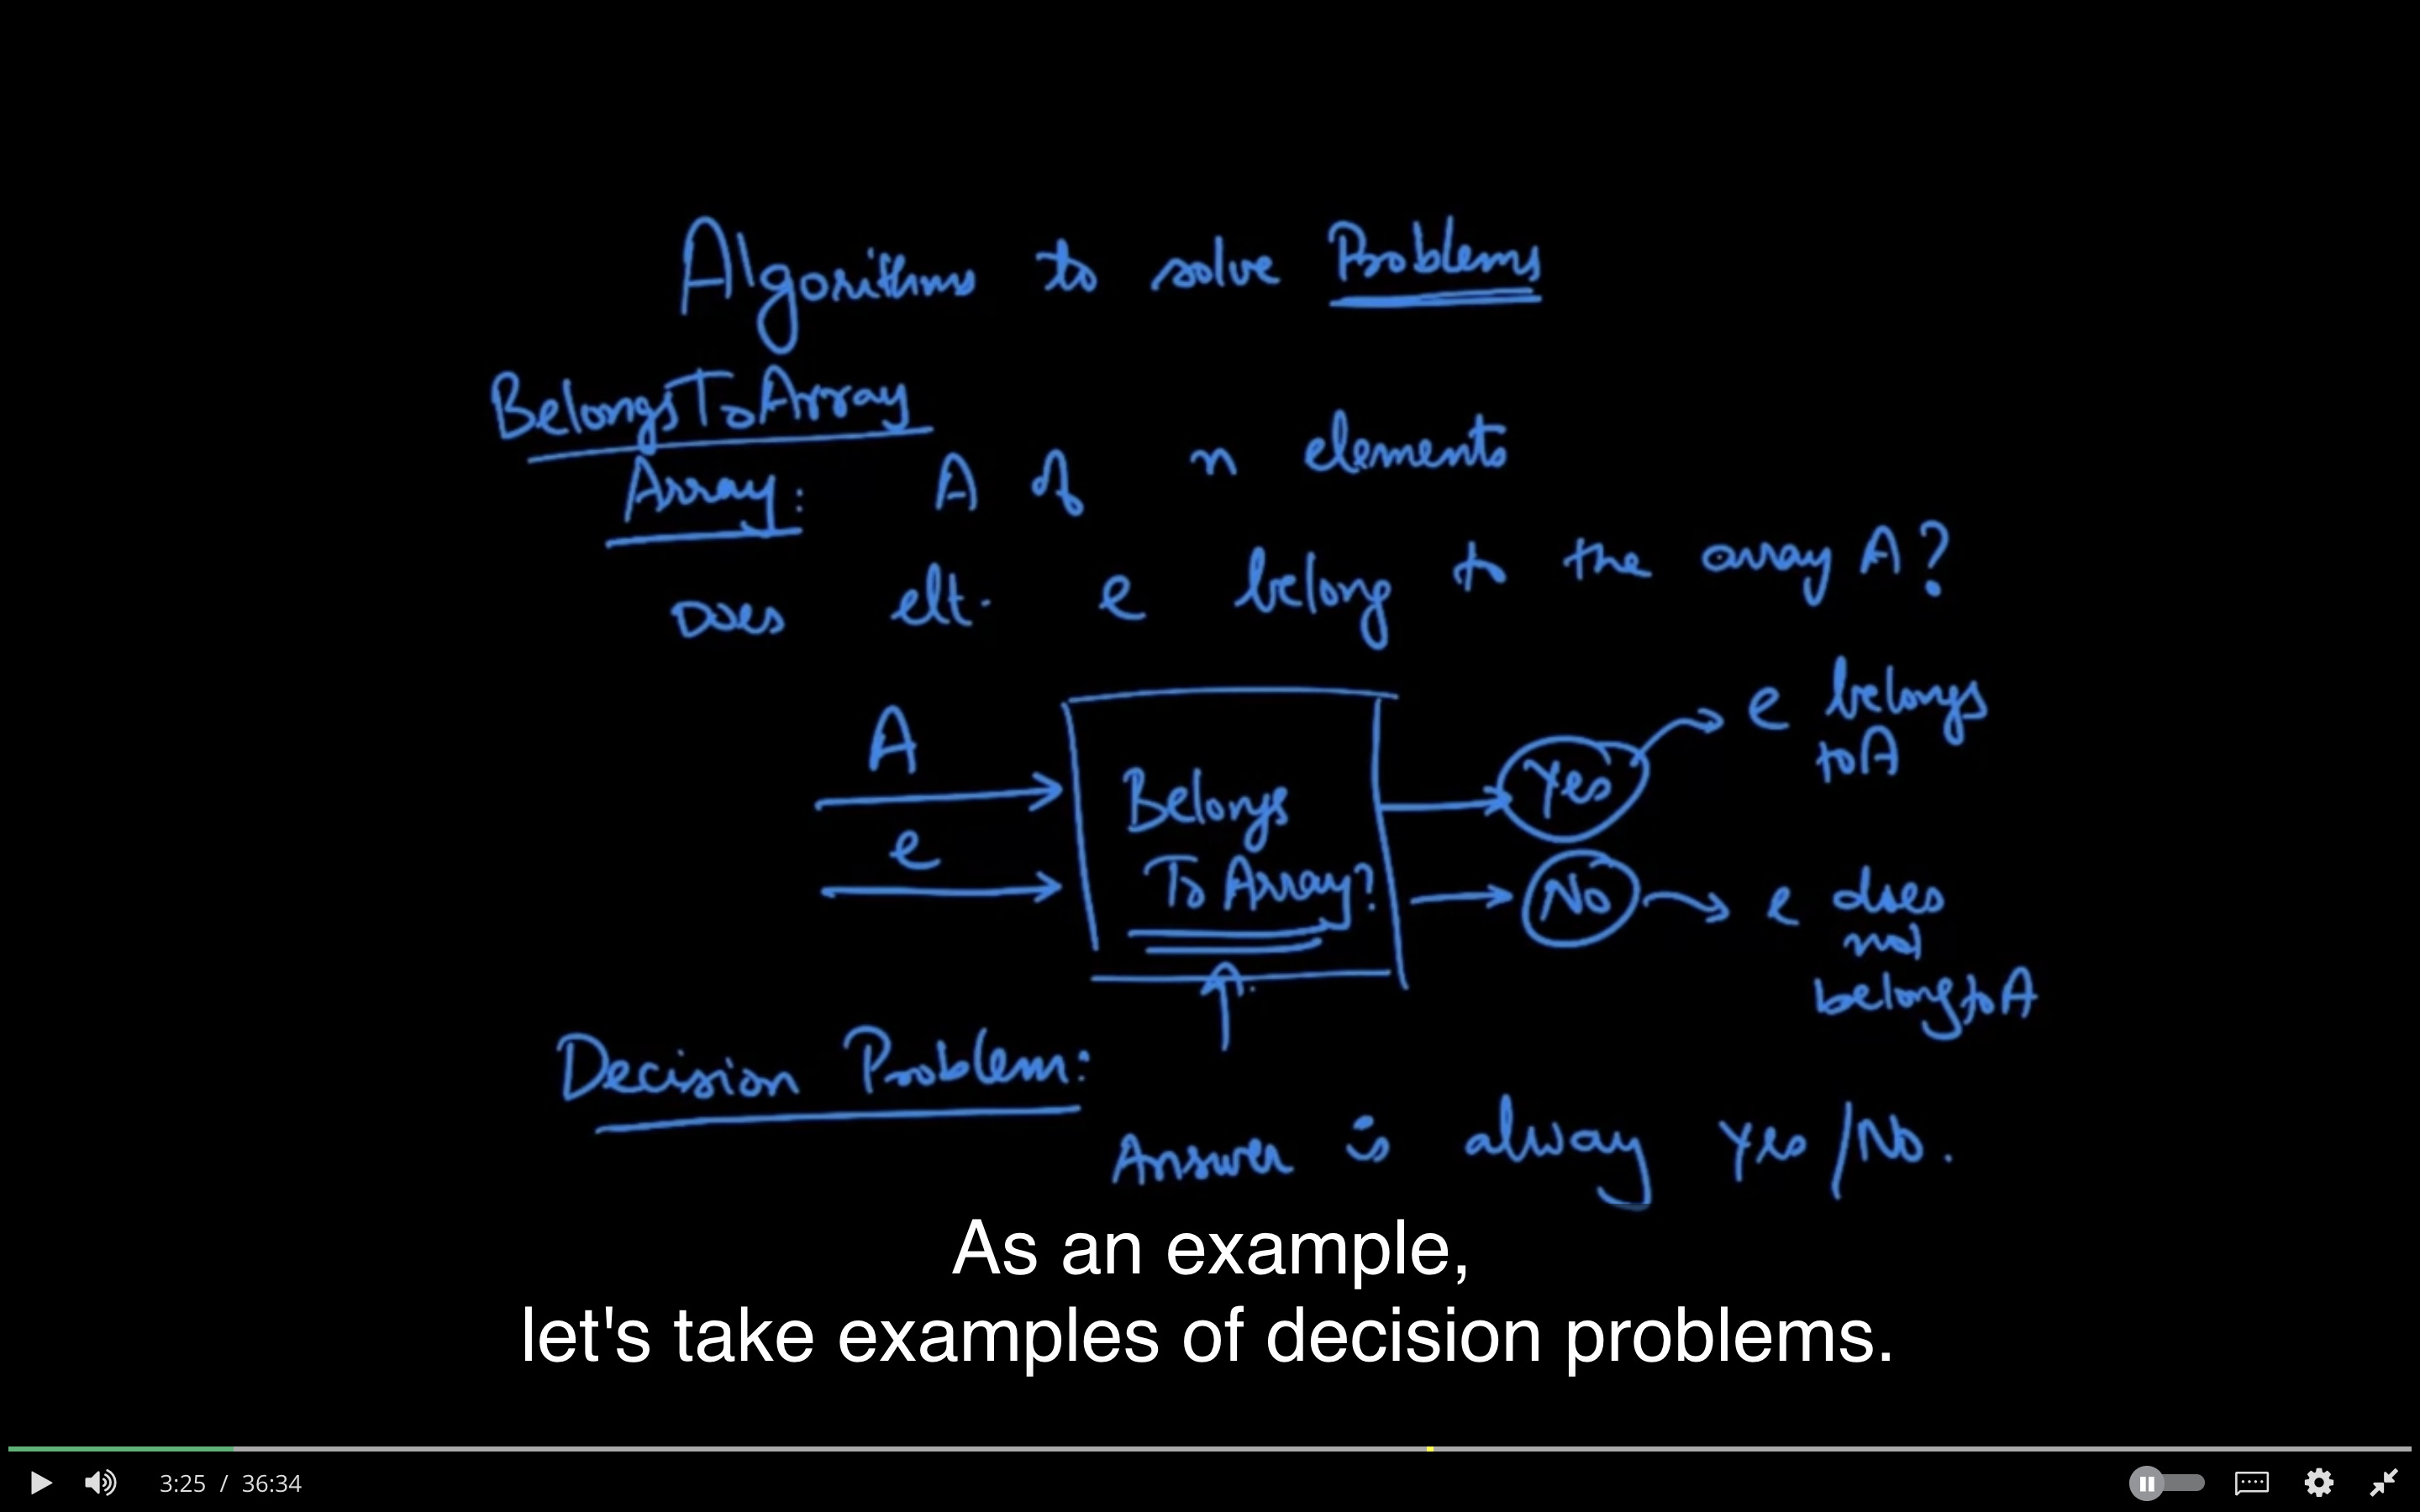 Algorithms to solve Problems
BelongsToArray
Array: A of n elements
Does elt. e belong to the array A?
A
e
Belongs
To Array?
Yes
e belongs
to A
No
e does
not
belong to A
Decision Problem:
Answer is alway Yes/No.
As an example,
let's take examples of decision problems.
3:25 / 36:34